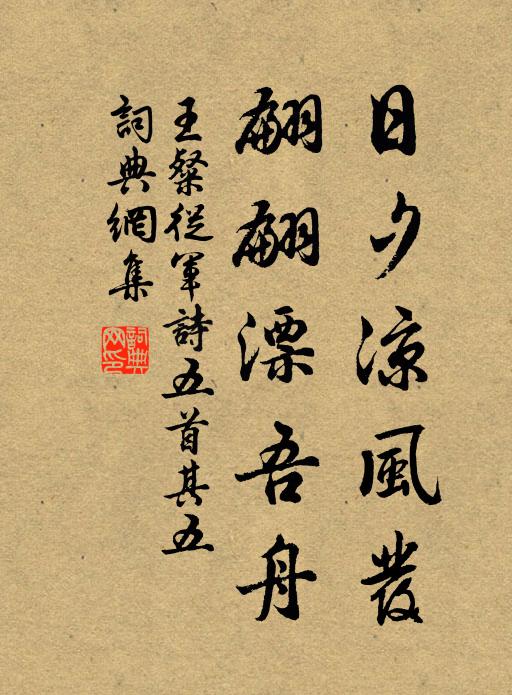 日夕涼風發
翩翩漂吾舟
王粲從軍詩五首其五
詞典網集
詞典网印